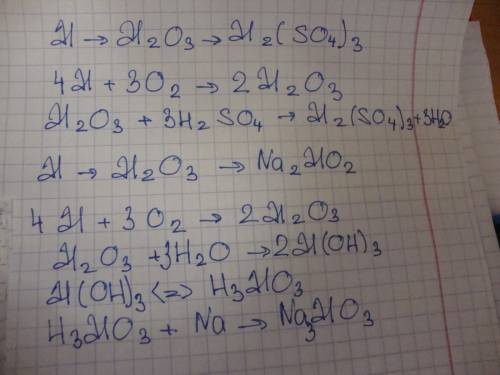 Al → Al₂O₃ → Al₂(SO₄)₃
4Al + 3O₂ → 2Al₂O₃
Al₂O₃ + 3H₂SO₄ → Al₂(SO₄)₃+3H₂O
Al → Al₂O₃ → Na₂AlO₂
4Al + 3O₂ → 2Al₂O₃
Al₂O₃ +3H₂O → 2Al(OH)₃
Al(OH)₃ <=> H₃AlO₃
H₃AlO₃ + Na → Na₃AlO₃